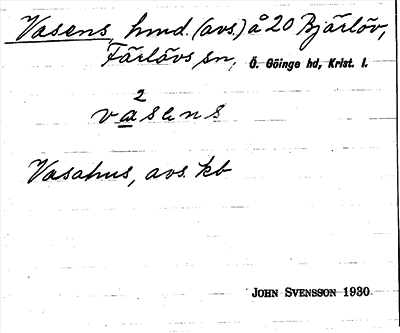 Vasens, hmd. (avs.) å 20 Bjärlöv,
Färlövs sn, Ö. Göinge hd, Krist. l.
2
vasens
Vasahus, avs. kb
JOHN SVENSSON 1930.